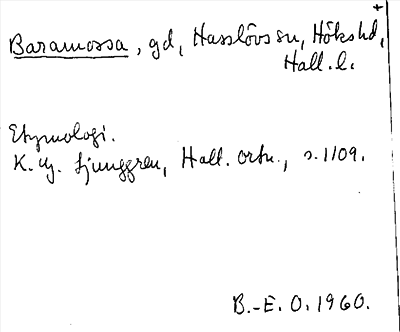 +
Baramossa, gd, Hasslövs sn, Höks hd,
Hall. l.
Etymologi.
K. G. Ljunggren, Hall. ortn., s. 1109.
B.-E. O. 1960.